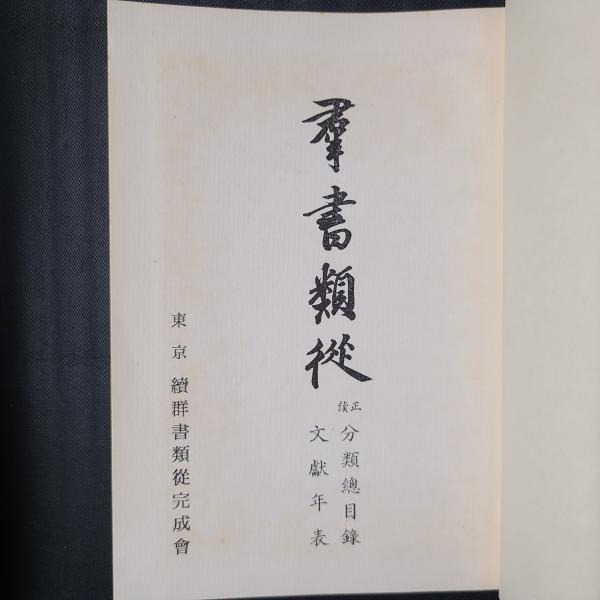 羣書類從
正續
分類總目錄
文獻年表
東京 續群書類從完成會